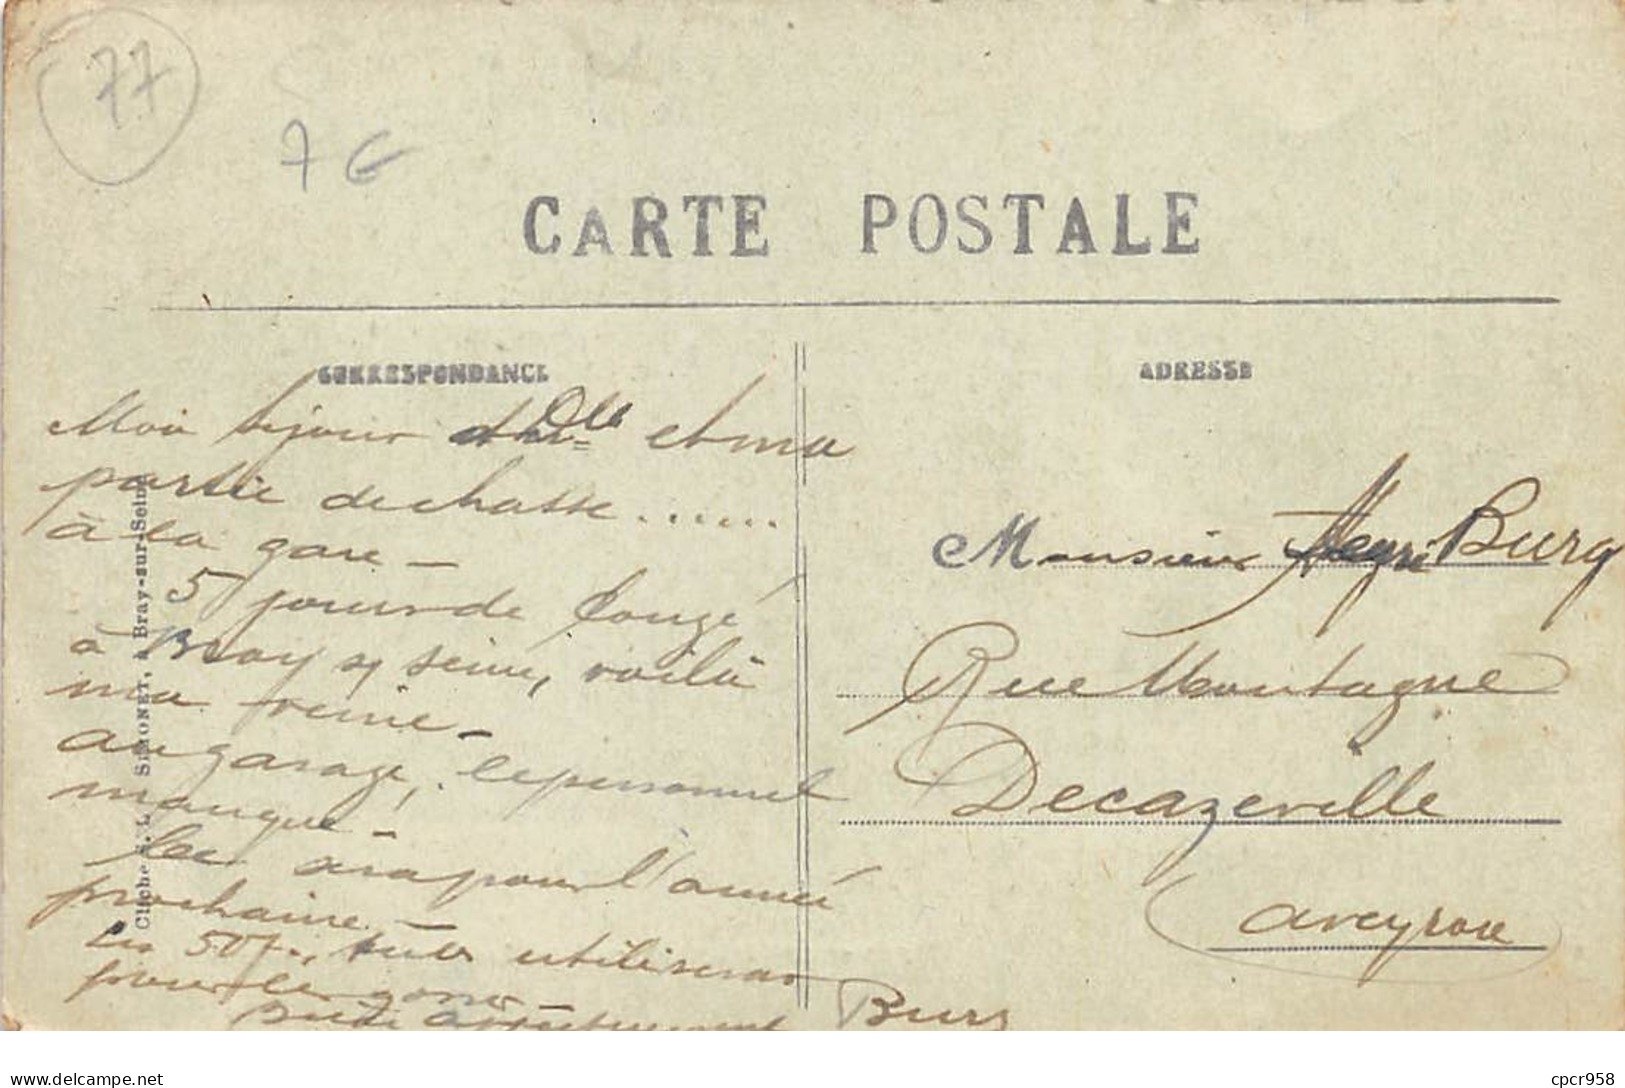 77
7 €
CARTE POSTALE
CORRESPONDANCE
ADRESSE
Mon séjour et ma
partie de chasse......
à la gare –
5 jours de Congé
à Bray s/ seine, voilà
ma veine –
au garage, le personnel
manque –
sera pour l'année
prochaine –
les 50f., tu les utiliseras
pour les gosses –
affectueusement Burg
Monsieur Henri Burg
Rue Montagne
Decazeville
Aveyron
Cliché S. L. SIMONET, à Bray-sur-Seine
delcampe.net
cpcr958